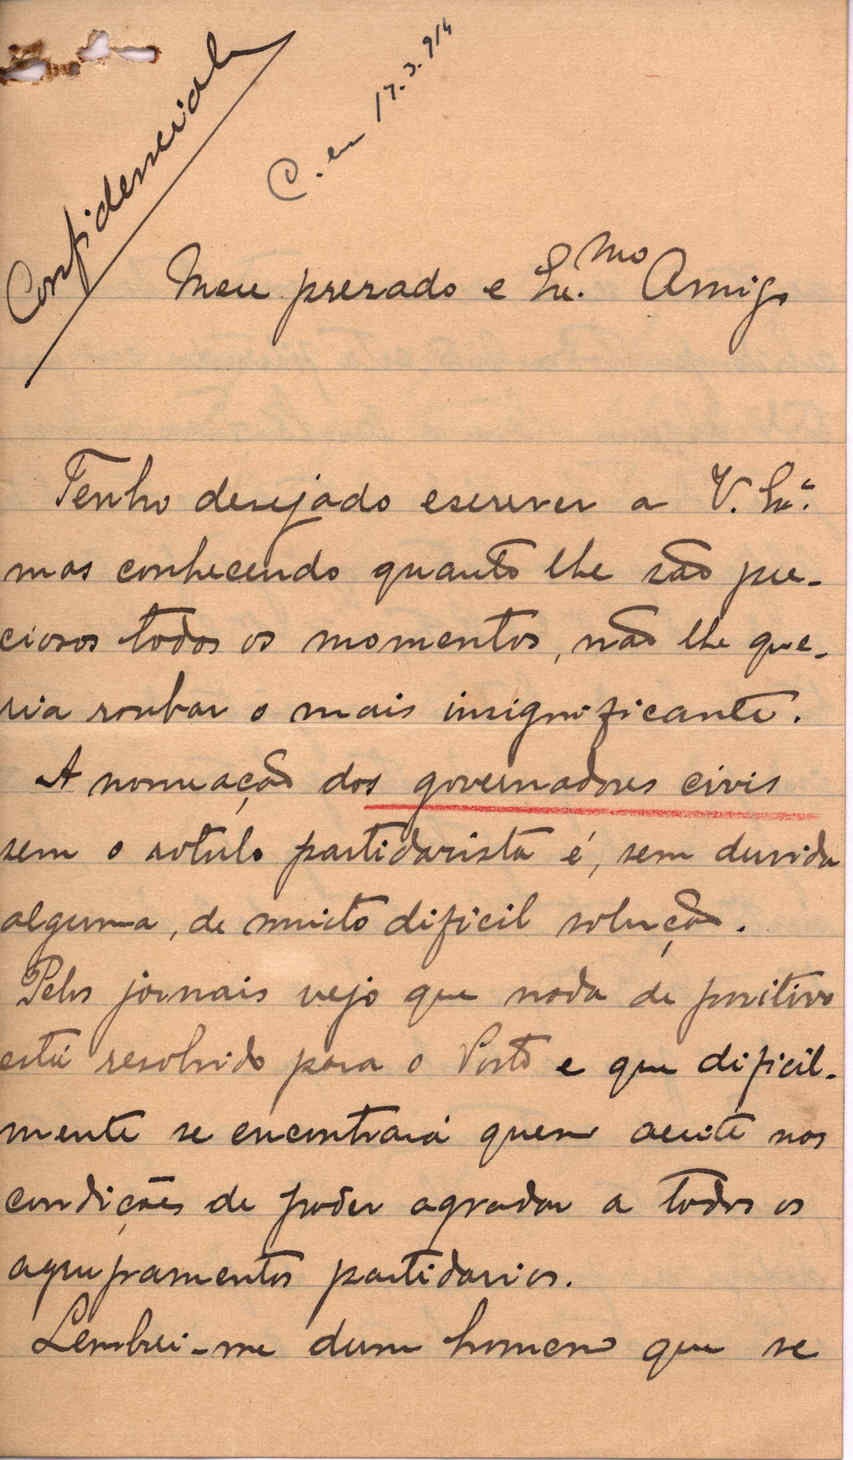 Confidencial
C. em 17.3.914
Meu prezado e Ex.mo Amigo
Tenho desejado escrever a V. Exª.
mas conhecendo quanto lhe são pre-
ciosos todos os momentos, não lhe que-
ria roubar o mais insignificante.
A nomeação dos governadores civis
sem o rotulo partidarista é, sem duvida
alguma, de muito dificil solução.
Pelos jornais vejo que nada de positivo
está resolvido para o Porto e que dificil-
mente se encontrará quem aceite nas
condições de poder agradar a todos os
agrupamentos partidarios.
Lembrei-me dum homem que se